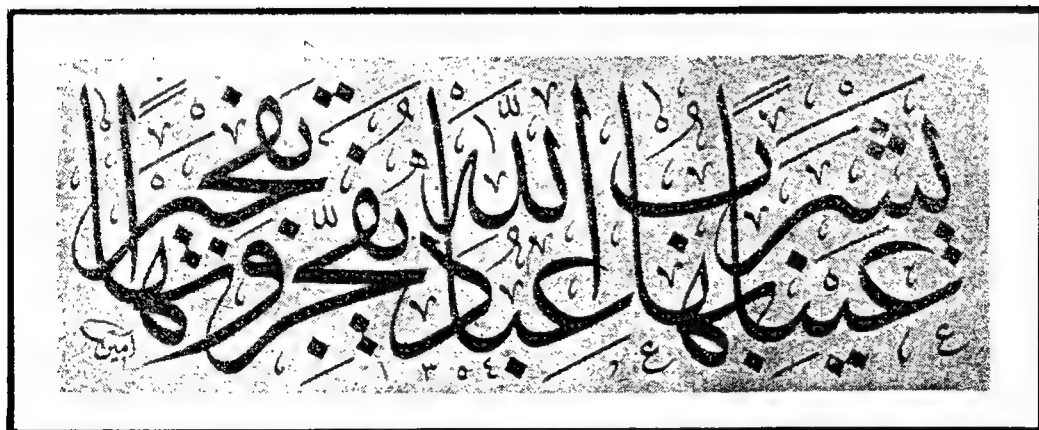 عينا يشرب بها عباد الله يفجرونها تفجيرا
١٣٥٤
أمين